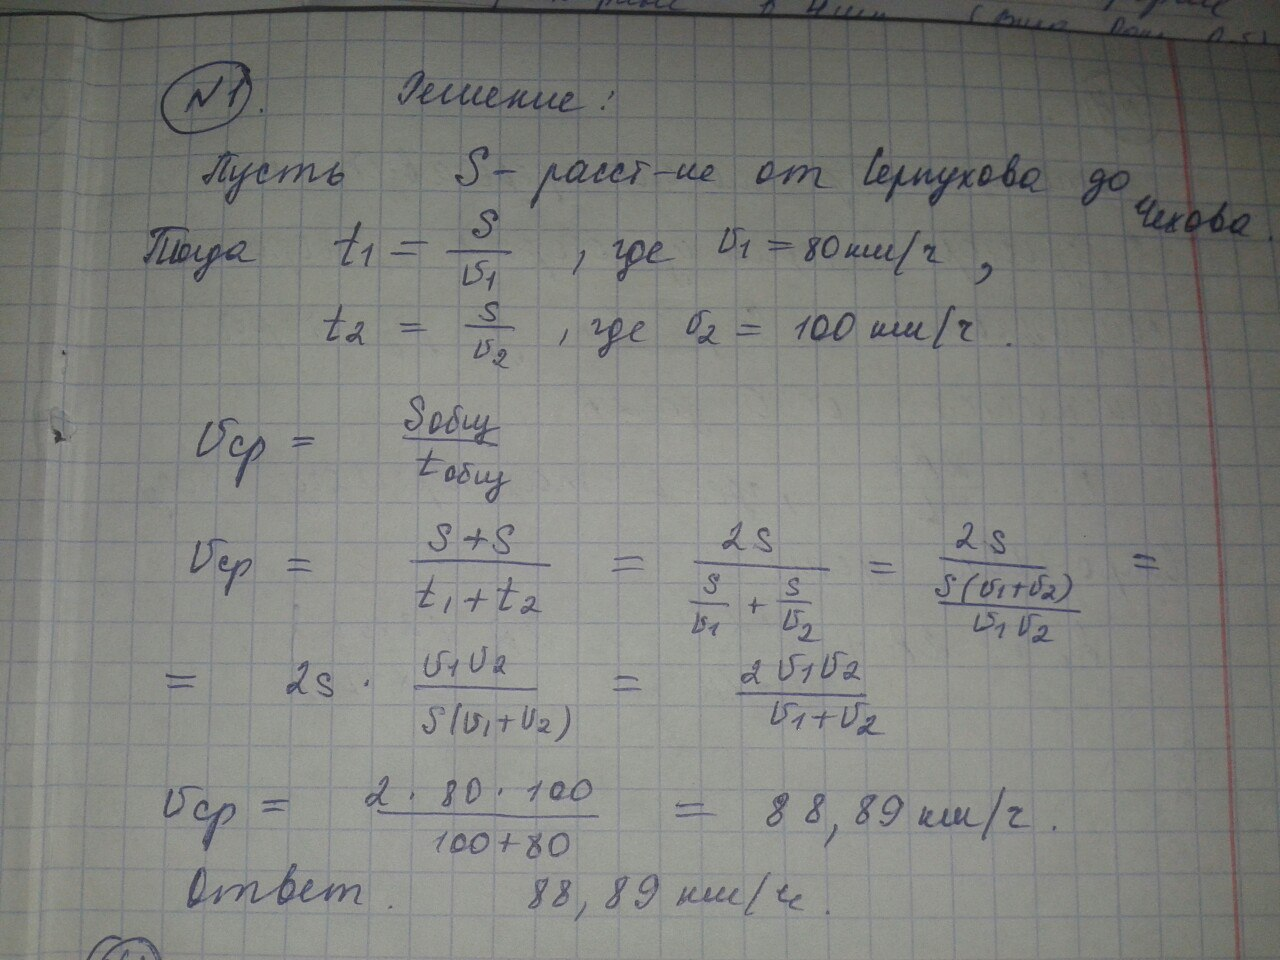 №1. Решение:
Пусть S - расст-ие от Серпухова до Чехова.
Тогда t1 = S/v1, где v1 = 80 км/ч,
t2 = s/v2, где v2 = 100 км/ч.
vср = Sобщ/tобщ
vср = (S+S)/(t1+t2) = 2s/(s/v1 + s/v2) = 2s/(s(v1+v2)/(v1v2)) =
= 2s · v1v2/(s(v1+v2)) = 2v1v2/(v1+v2)
vср = (2·80·100)/(100+80) = 88,89 км/ч.
Ответ. 88,89 км/ч.